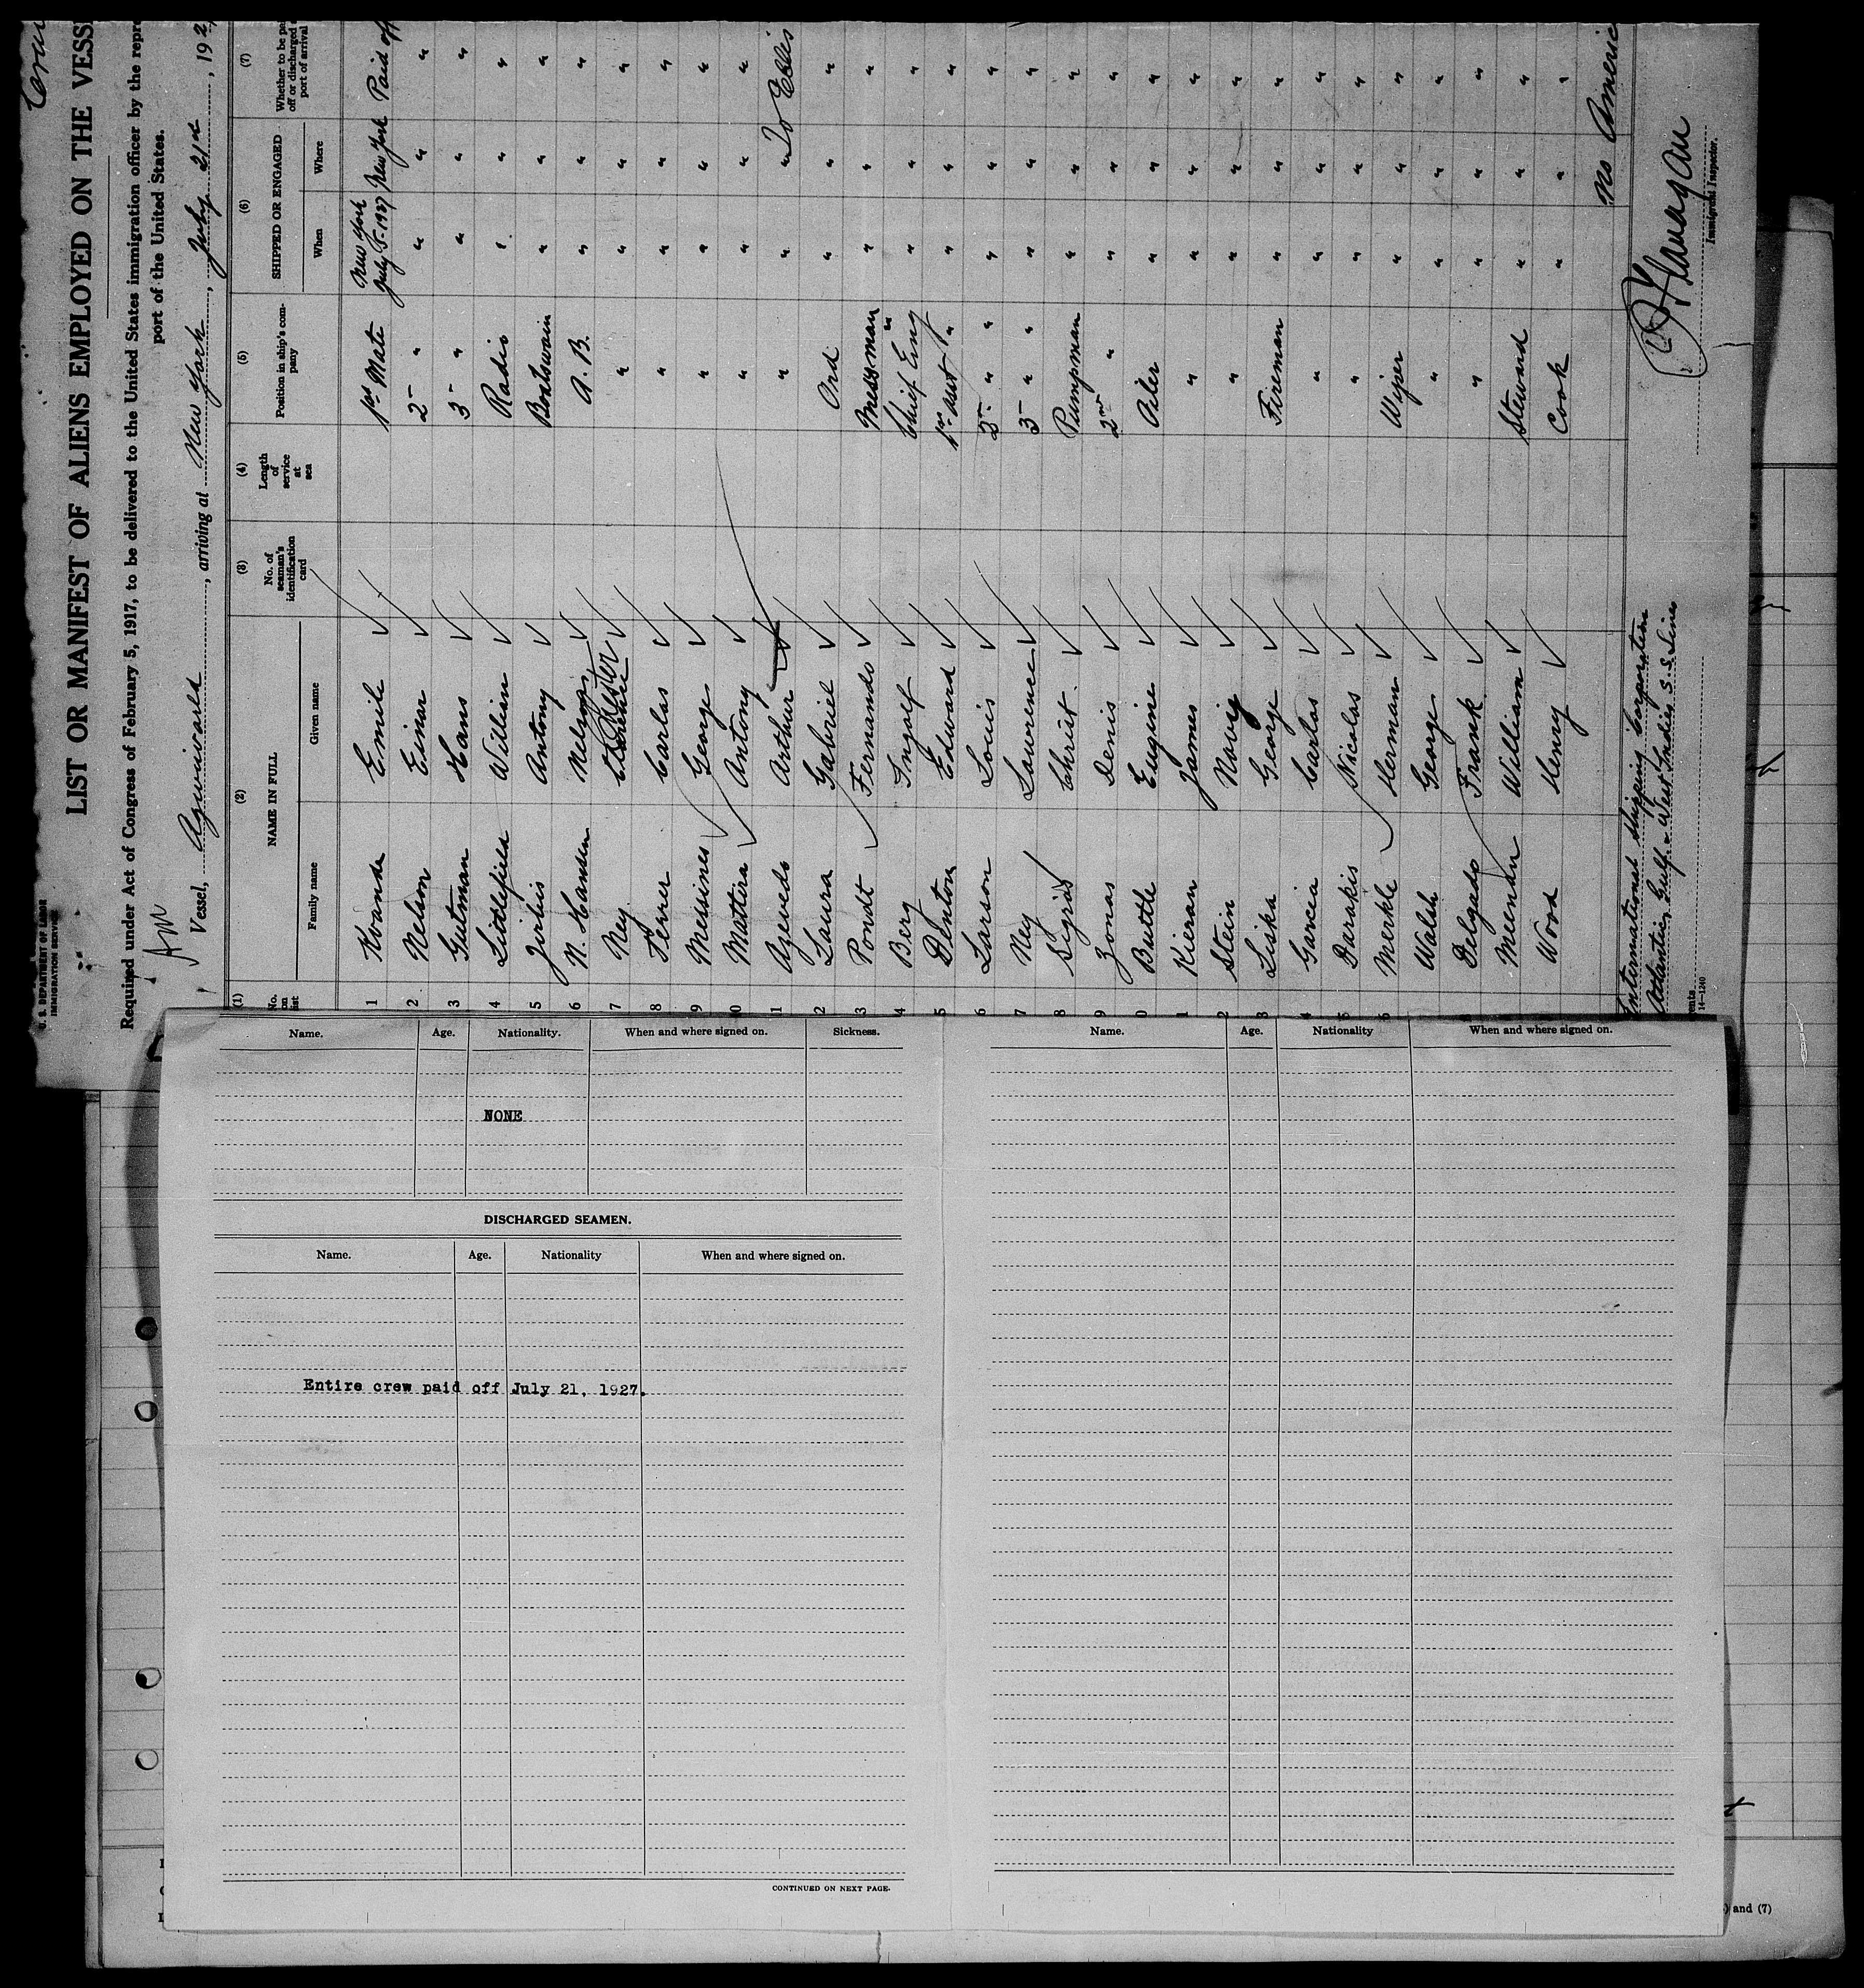 U. S. DEPARTMENT OF LABOR
IMMIGRATION SERVICE
LIST OR MANIFEST OF ALIENS EMPLOYED ON THE VESS
Required under Act of Congress of February 5, 1917, to be delivered to the United States immigration officer by the repre
port of the United States.
Vessel, Agwiworld, arriving at New York, July 21st, 192
(1) (2) (3) (4) (5) (6) (7)
NAME IN FULL No. of seaman's identification card Length of service at sea Position in ship's company SHIPPED OR ENGAGED Whether to be pa
off or discharged
port of arrival
Family name Given name When Where
1 Kvande Emile 1st Mate New York July 8-1927 New York Paid off
2 Nelson Einar 2 " " " "
3 Gutman Hans 3 " " " "
4 Littlefield William Radio " " "
5 Jirlis Antony Boatswain " " "
6 N. Hansen Nelson A. B. " " "
7 Ney Chester " " " "
8 Ferrer Carlos " " " "
9 Messines George " " " "
10 Mattira Antony " " " "
11 Azevedo Arthur " " " To Ellis
2 Laura Gabriel Ord " " "
3 Pondt Fernando Messman " " "
4 Berg Ingolf Chief Eng " " "
5 Denton Edward 1st Asst " " " "
6 Larson Louis 2 " " " " "
7 Ney Laurence 3 " " " " "
8 Sigras Christ. Pumpman " " "
9 Zonas Denis 2nd " " " "
0 Buttle Eugine Oiler " " "
1 Kieran James " " " "
2 Stein Novig " " " "
3 Liska George Fireman " " "
4 Garcia Carlos " " " "
5 Darakis Nicolas " " " "
6 Merkle Herman Wiper " " "
Walsh George " " " "
Delgado Frank " " " "
Meenan William Steward " " "
Wood Henry Cook " " "
No Americ
International Shipping Corporation
Atlantic Gulf & West Indies S.S. Lines
14—1240
Immigrant Inspector.
Name. Age. Nationality. When and where signed on. Sickness.
NONE
DISCHARGED SEAMEN.
Name. Age. Nationality When and where signed on.
Entire crew paid off July 21, 1927.
CONTINUED ON NEXT PAGE.
Name. Age. Nationality When and where signed on.
) and (7)